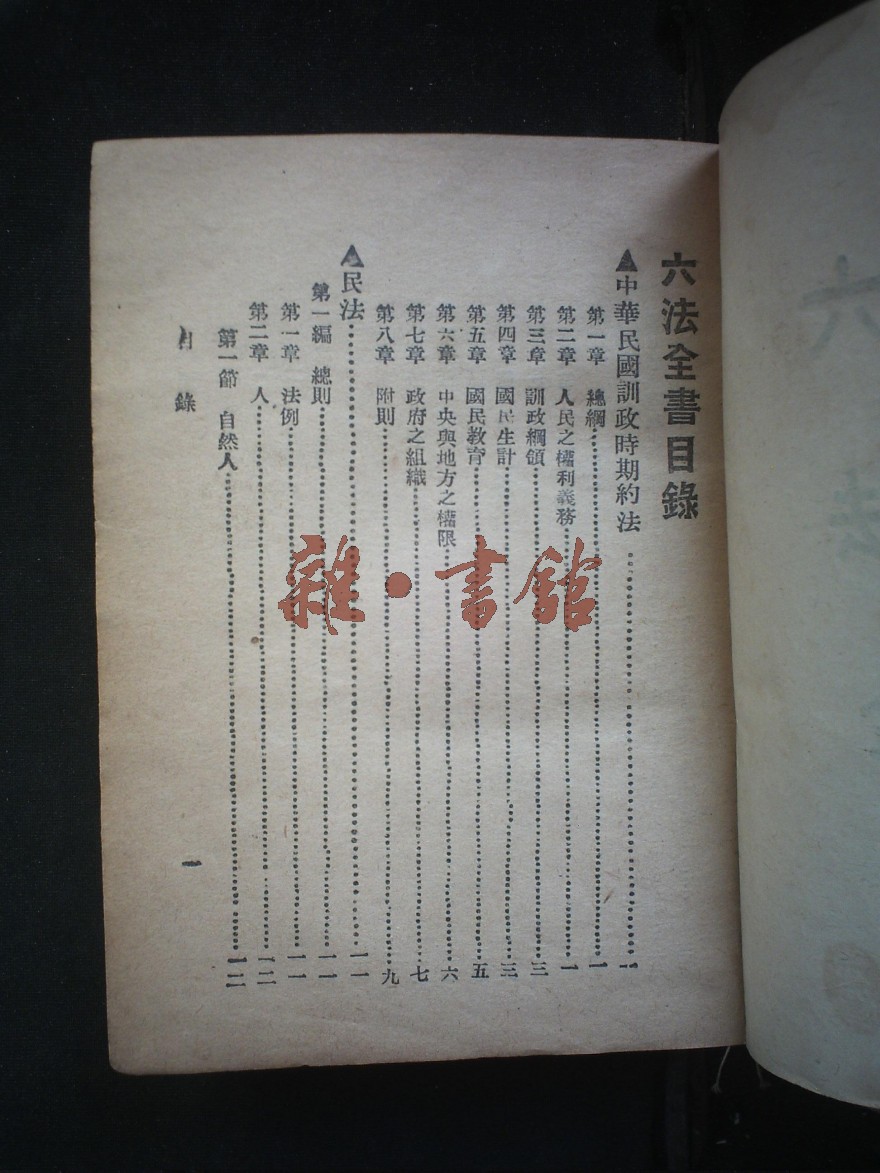 六法全書目錄
▲中華民國訓政時期約法……一
第一章 總綱……一
第二章 人民之權利義務……一
第三章 訓政綱領……三
第四章 國民生計……三
第五章 國民教育……五
第六章 中央與地方之權限……六
第七章 政府之組織……七
第八章 附則……九
▲民法……一一
第一編 總則……一一
第一章 法例……一一
第二章 人……一二
第一節 自然人……一二
目錄 一
雜·書館